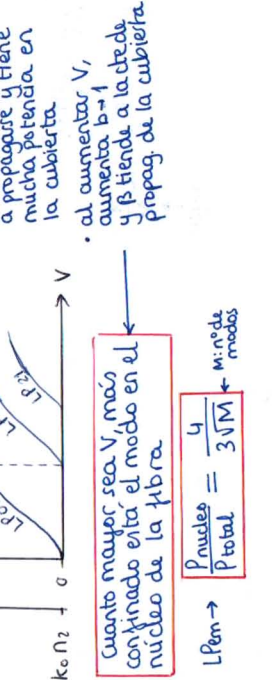 a propagarse y tiene
mucha potencia en
la cubierta
LP21
k₀n₂
0
V
• al aumentar V,
aumenta b→1
y β tiende a la cte de
propag. de la cubierta
Cuanto mayor sea V, más
confinado está el modo en el
núcleo de la fibra
LPem → Pnucleo / Ptotal = 4 / 3√M ← M: nº de
modos